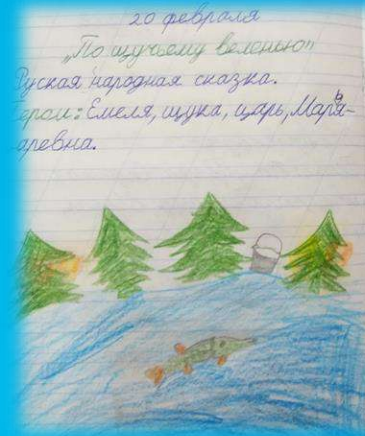 20 февраля
„По щучьему велению"
Руская народная сказка.
Герои: Емеля, щука, царь, Марья-
царевна.